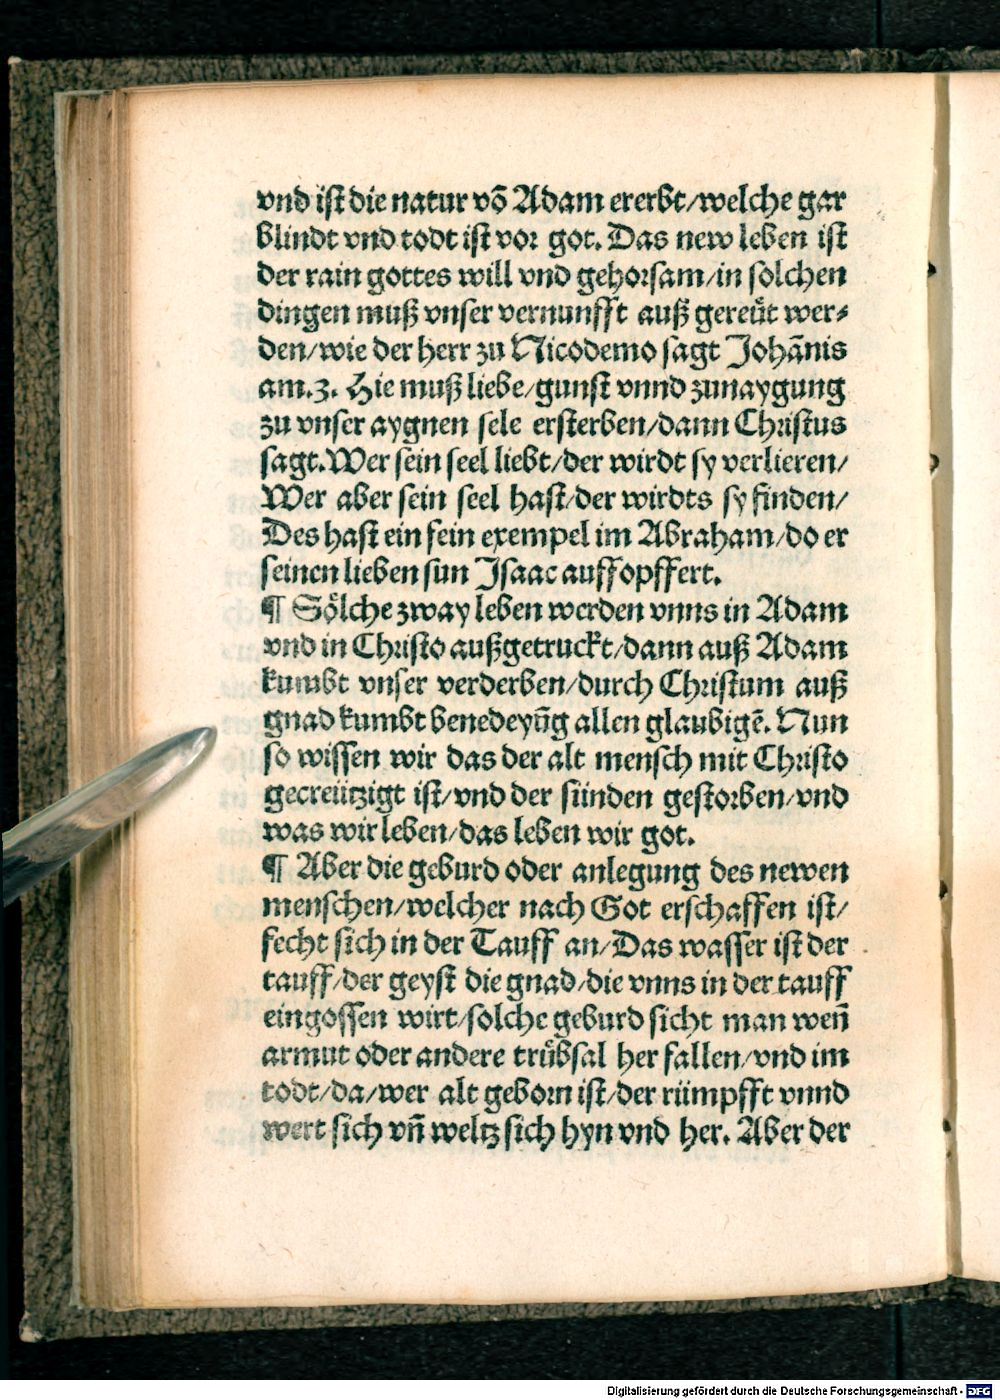 vnd ist die natur võ Adam ererbt/welche gar
blindt vnd todt ist vor got. Das new leben ist
der rain gottes will vnd gehorsam/in solchen
dingen muß vnser vernunfft auß gereüt wer-
den/wie der herr zu Nicodemo sagt Johãnis
am.3. Hie muß liebe/gunst vnnd zunaygung
zu vnser aygnen sele ersterben/dann Christus
sagt.Wer sein seel liebt/der wirdt sy verlieren/
Wer aber sein seel hast/der wirdts sy finden/
Des hast ein fein exempel im Abraham/do er
seinen lieben sun Jsaac auffopffert.
¶ Sölche zway leben werden vnns in Adam
vnd in Christo außgetruckt/dann auß Adam
kumbt vnser verderben/durch Christum auß
gnad kumbt benedeyũg allen glaubigẽ. Nun
so wissen wir das der alt mensch mit Christo
gecreützigt ist/vnd der sünden gestorben/vnd
was wir leben/das leben wir got.
¶ Aber die geburd oder anlegung des newen
menschen/welcher nach Got erschaffen ist/
fecht sich in der Tauff an/Das wasser ist der
tauff/der geyst die gnad/die vnns in der tauff
eingossen wirt/solche geburd sicht man weñ
armut oder andere trübsal her fallen/vnd im
todt/da/wer alt geborn ist/der rümpfft vnnd
wert sich vñ weltz sich hyn vnd her. Aber der
Digitalisierung gefördert durch die Deutsche Forschungsgemeinschaft - DFG